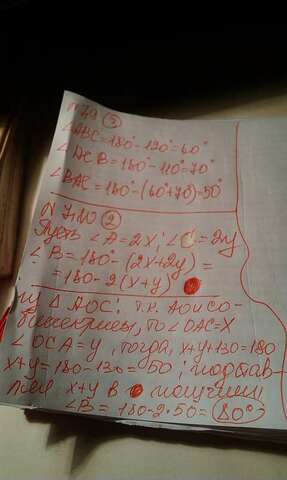 N 7.9 ③
∠ABC=180°-120°=60°
∠ACB=180°-110°=70°
∠BAC=180°-(60°+70°)=50°
N 7.10 ②
Пусть ∠A=2x; ∠C=2y
∠B=180°-(2x+2y)=
=180-2(x+y)
△AOC: т.к. AO и CO-
биссектрисы, то ∠OAC=x
∠OCA=y, тогда, x+y+130=180
x+y=180-130=50; подстав-
ляем x+y в получим
∠B=180-2·50=80°